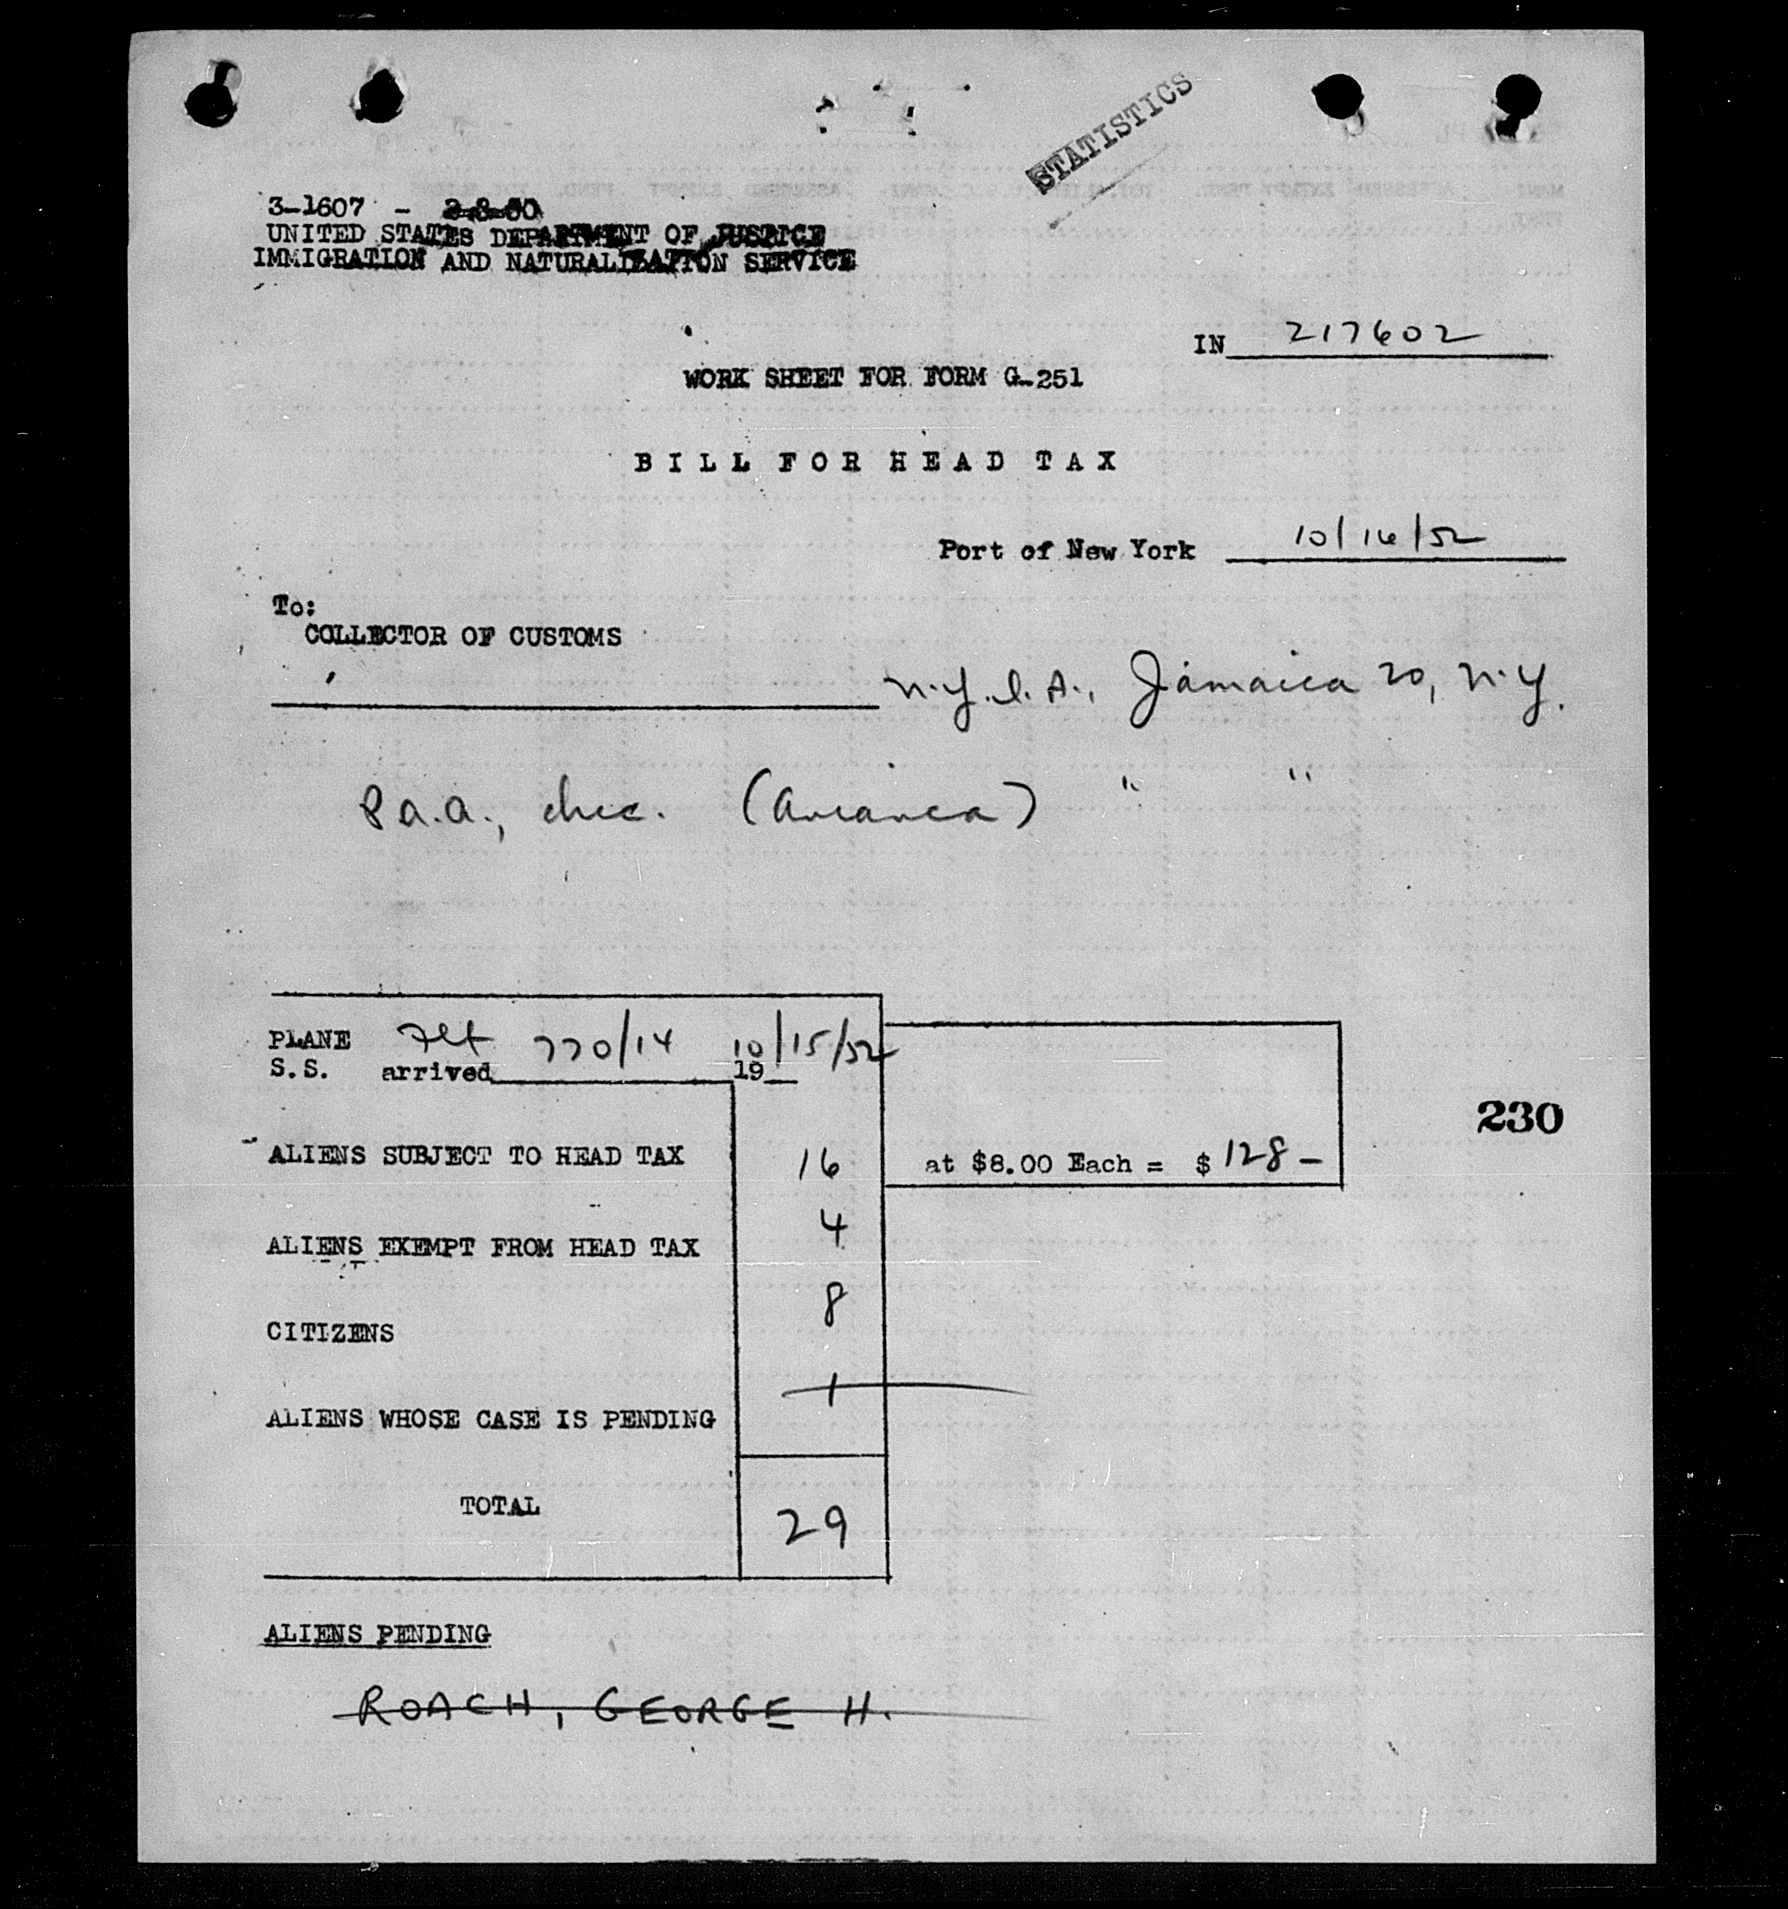 STATISTICS
3-1607 - 2-8-50
UNITED STATES DEPARTMENT OF JUSTICE
IMMIGRATION AND NATURALIZATION SERVICE
IN 217602
WORK SHEET FOR FORM G-251
BILL FOR HEAD TAX
Port of New York 10/16/52
To:
COLLECTOR OF CUSTOMS
N.Y.I.A., Jamaica 20, N.Y.
P.A.A., Inc. (Avianca) " "
PLANE Flt 770/14 10/15/52
S.S. arrived 19
ALIENS SUBJECT TO HEAD TAX 16 at $8.00 Each = $ 128-
230
ALIENS EXEMPT FROM HEAD TAX 4
CITIZENS 8
ALIENS WHOSE CASE IS PENDING 1
TOTAL 29
ALIENS PENDING
ROACH, GEORGE H.